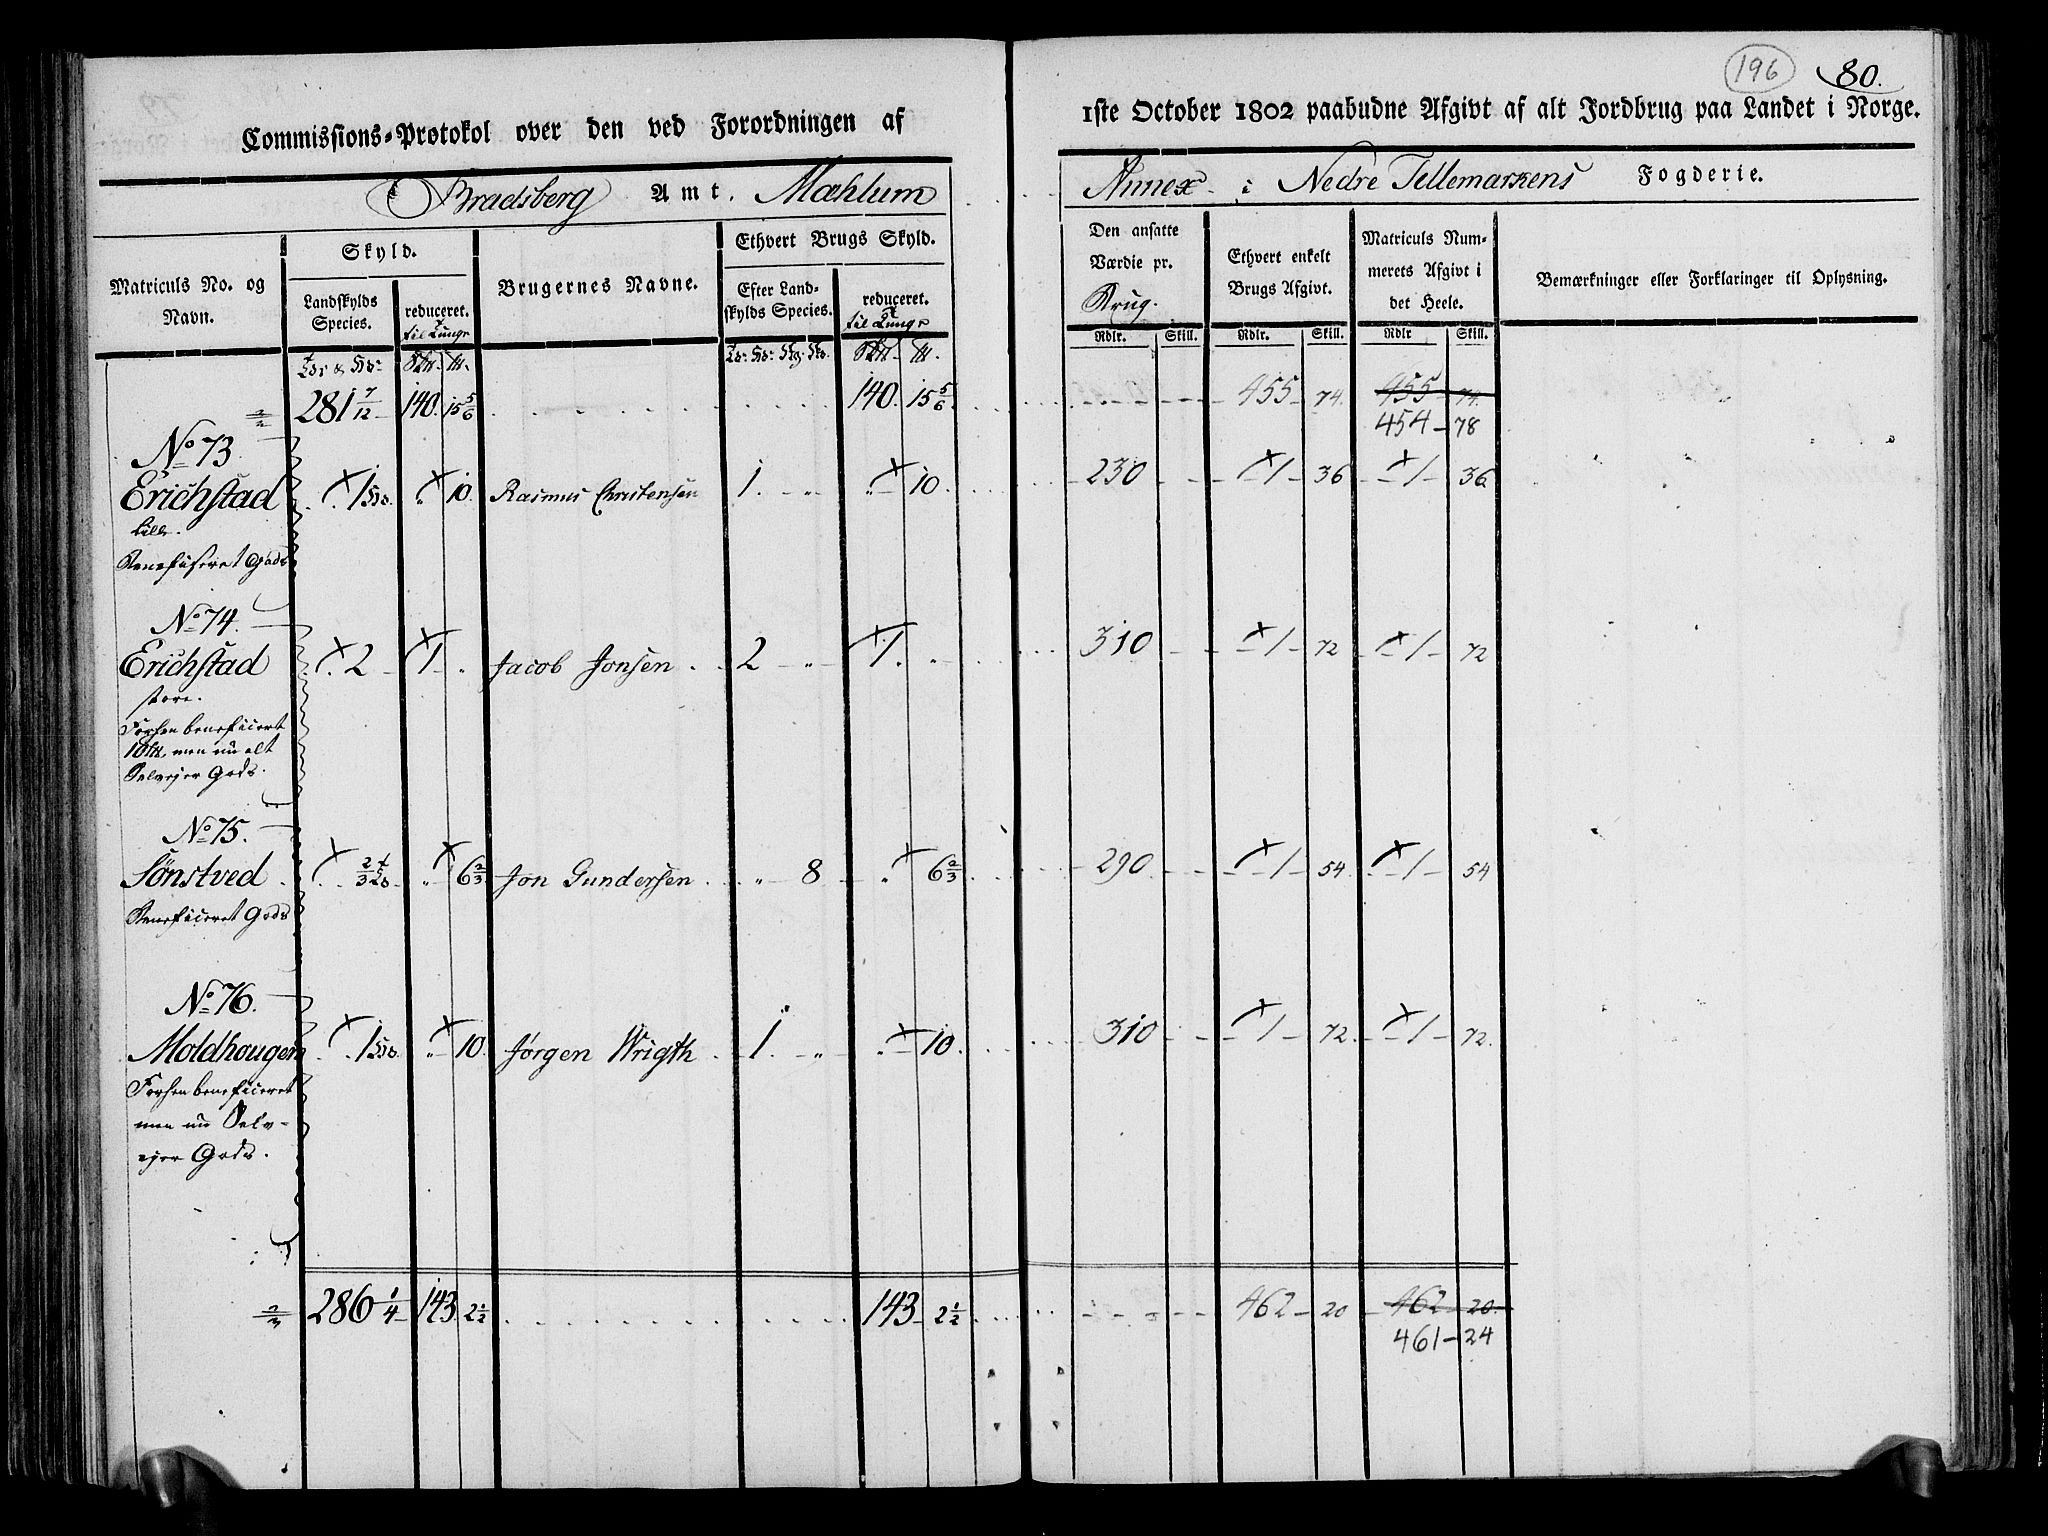 196 80.
Commissions-Protokol over den ved Forordningen af 1ste October 1802 paabudne Afgivt af alt Jordbrug paa Landet i Norge.
Bradsberg Amt. Mæhlum Annex i Nedre Tellemarkens Fogderie.
Matriculs No. og Navn.
Skyld.
Landskylds Species.
reduceret.
til Tunge
Brugernes Navne.
Ethvert Brugs Skyld.
Efter Landskylds Species.
reduceret.
til Tunge
Den ansatte Værdie pr. Brug.
Ethvert enkelt Brugs Afgivt.
Matriculs Nummerets Afgivt i det Heele.
Bemærkninger eller Forklaringer til Oplysning.
Rdlr. Skill. Rdlr. Skill. Rdlr Skill.
281 7/12 140. 15 5/6 140. 15 5/6 455 74. 455 74.
454 - 78
No 73.
Erichstad 1 10. Rasmus Christensen 1. 10. 230 1 36 1 36
Lille.
Beneficeret Gods
No 74.
Erichstad 2 1 Jacob Jonsen 2 1. 310 1 72 1 72
store.
Forhen beneficeret
10 men nu alt
Selvejer Gods.
No 75.
Sönstved 2/3 6 2/3 Jon Gundersen 8 6 2/3 290. 1 54 1 54
Beneficeret Gods
No 76.
Moldhougen 1 10. Jørgen Wrigth 1. 10. 310 1 72 1 72.
Forhen beneficeret
men nu Selv-
ejer Gods.
286 1/4 143 2 1/2 143 2 1/2 462 20 462 20.
461 - 24